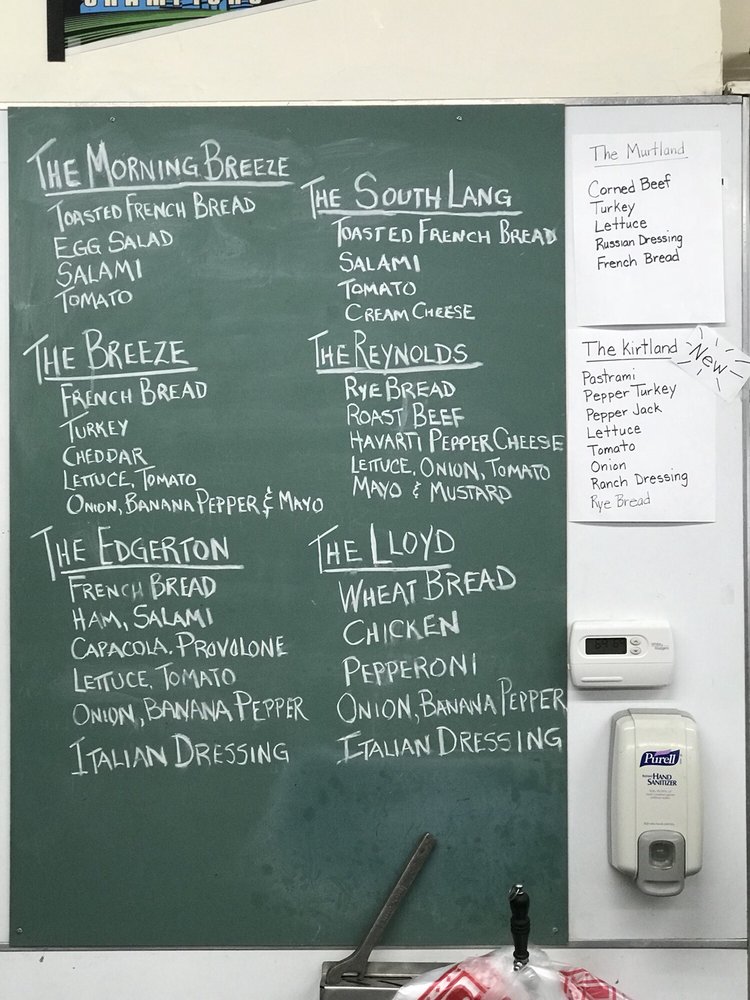 THE MORNING BREEZE
TOASTED FRENCH BREAD
EGG SALAD
SALAMI
TOMATO
THE BREEZE
FRENCH BREAD
TURKEY
CHEDDAR
LETTUCE, TOMATO
ONION, BANANA PEPPER & MAYO
THE EDGERTON
FRENCH BREAD
HAM, SALAMI
CAPACOLA. PROVOLONE
LETTUCE, TOMATO
ONION, BANANA PEPPER
ITALIAN DRESSING
THE SOUTH LANG
TOASTED FRENCH BREAD
SALAMI
TOMATO
CREAM CHEESE
THE REYNOLDS
RYE BREAD
ROAST BEEF
HAVARTI PEPPER CHEESE
LETTUCE, ONION, TOMATO
MAYO & MUSTARD
THE LLOYD
WHEAT BREAD
CHICKEN
PEPPERONI
ONION, BANANA PEPPER
ITALIAN DRESSING
The Murtland
Corned Beef
Turkey
Lettuce
Russian Dressing
French Bread
The Kirtland
New
Pastrami
Pepper Turkey
Pepper Jack
Lettuce
Tomato
Onion
Ranch Dressing
Rye Bread
Purell
HAND
SANITIZER